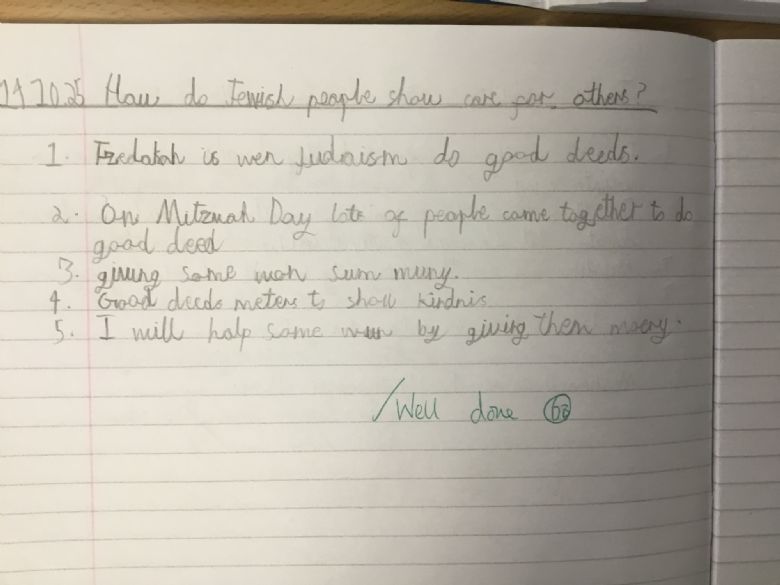 14.10.25 How do Jewish people show care for others?
1. Tzedakah is wen Judaism do good deeds.
2. On Mitzvah Day lots of people come together to do
good deed
3. giving some woh sum muny.
4. Good deeds meters to show kindnis
5. I will help some wun by giving them moeny.
/Well done